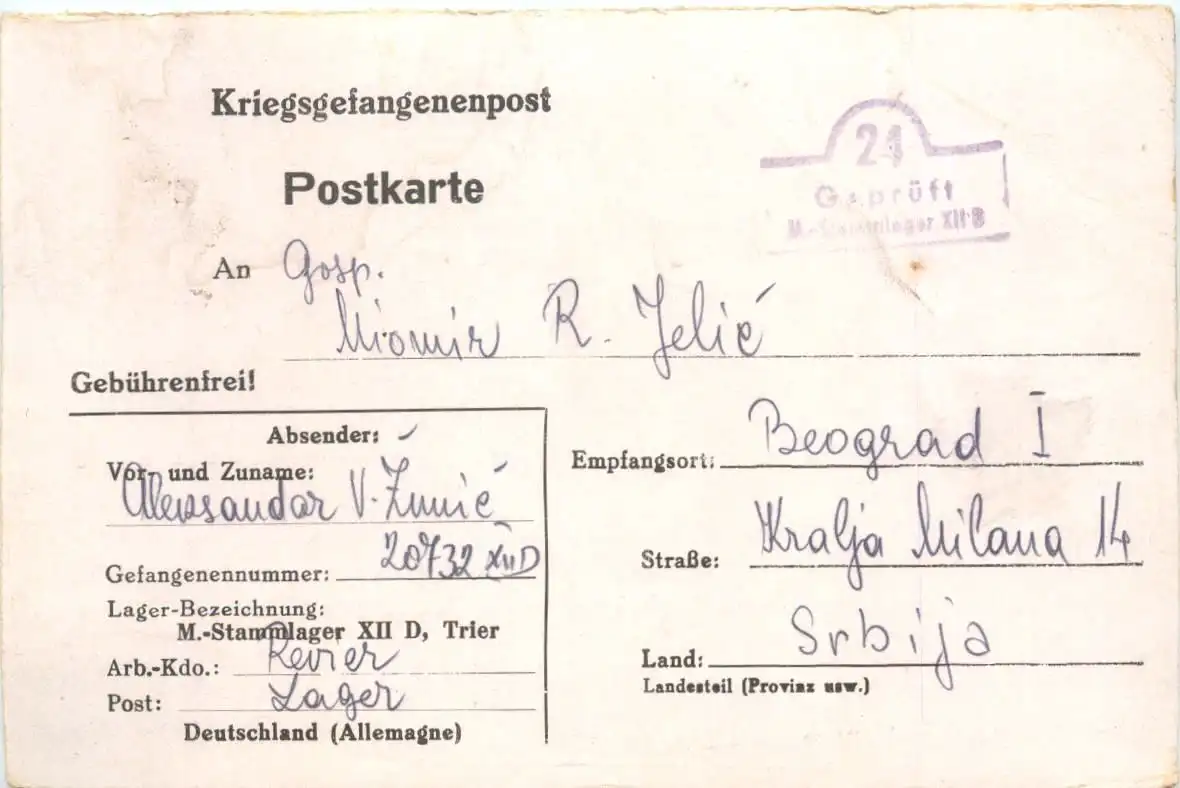 Kriegsgefangenenpost
Postkarte
24
Geprüft
M.-Stammlager XII B
An Gosp.
Miomir R. Jelić
Gebührenfrei!
Absender:
Vor- und Zuname:
Aleksandar V. Zunić
Gefangenennummer: 20732 XII D
Lager-Bezeichnung:
M.-Stammlager XII D, Trier
Arb.-Kdo.: Revier
Post: Lager
Deutschland (Allemagne)
Empfangsort: Beograd I
Straße: Kralja Milana 14
Land: Srbija
Landesteil (Provinz usw.)